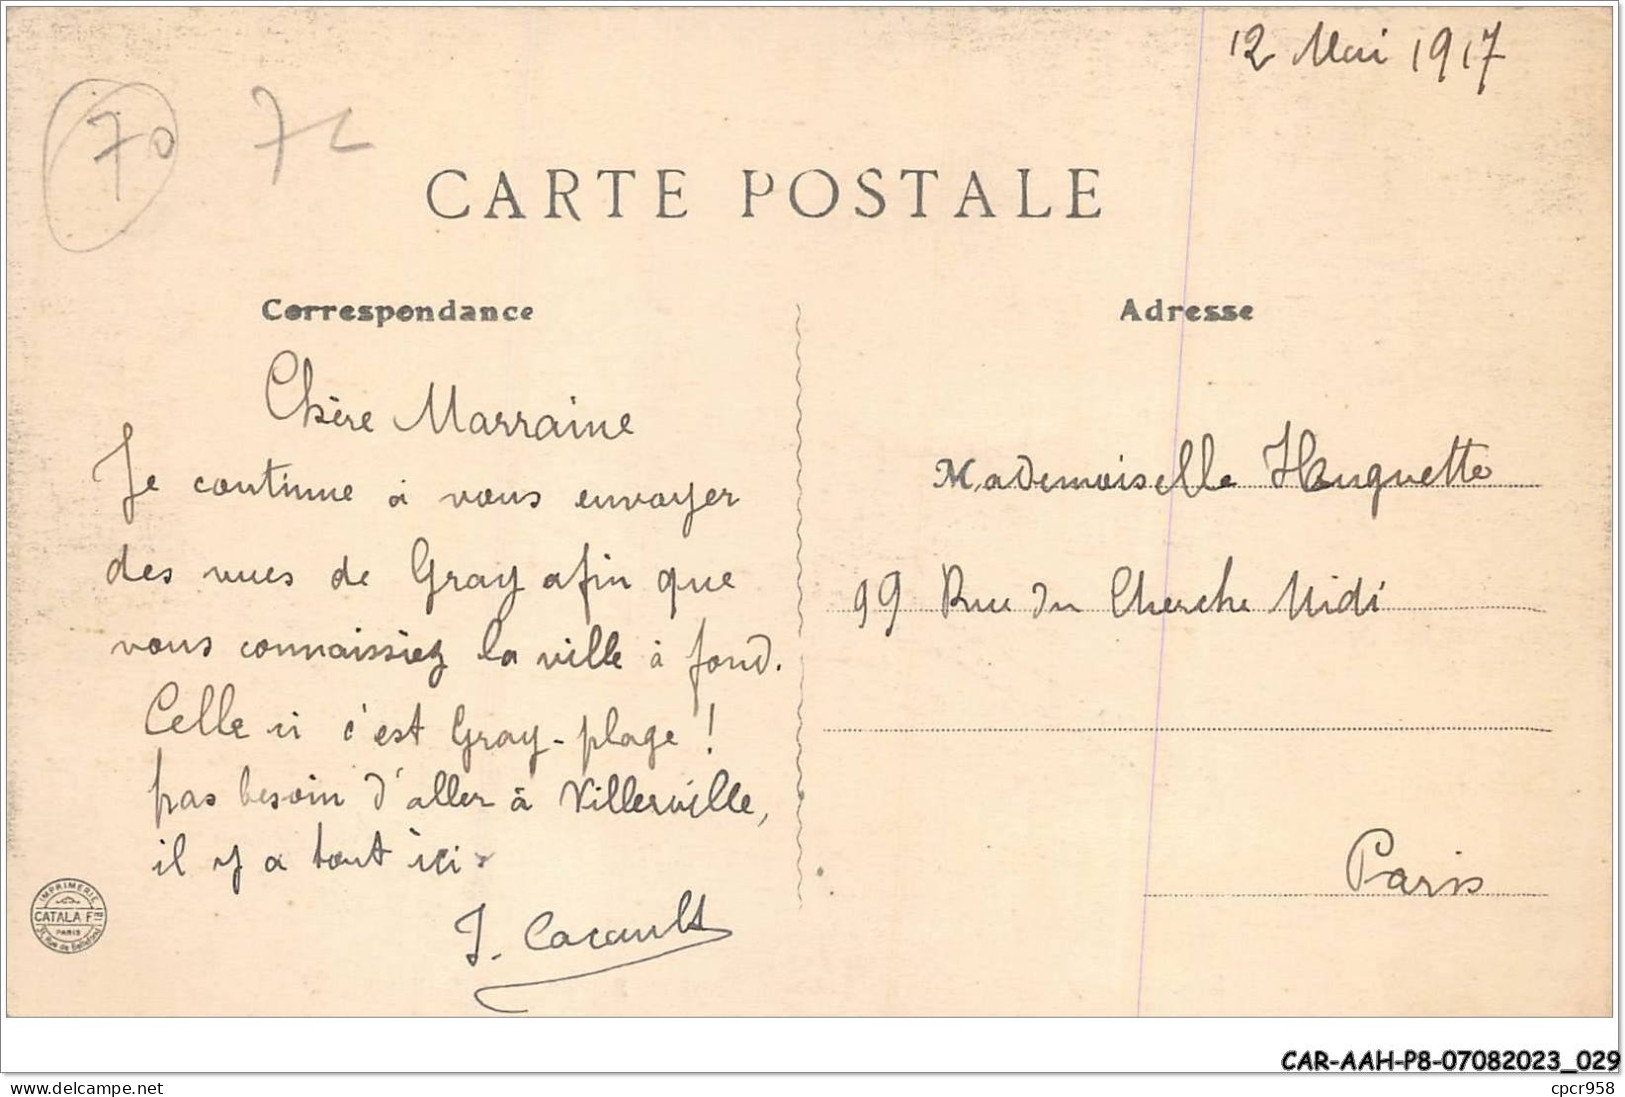 12 Mai 1917
70 7c
CARTE POSTALE
Correspondance
Adresse
Chère Marraine
Je continue à vous envoyer
des vues de Gray afin que
vous connaissiez la ville à fond.
Celle ci c'est Gray-plage !
pas besoin d'aller à Villerville,
il y a tout ici.
J. Cacault
Mademoiselle Huguette
99 Rue du Cherche Midi
Paris
IMPRIMERIE
CATALA Frères
PARIS
CAR-AAH-P8-07082023_029
www.delcampe.net
cpcr958